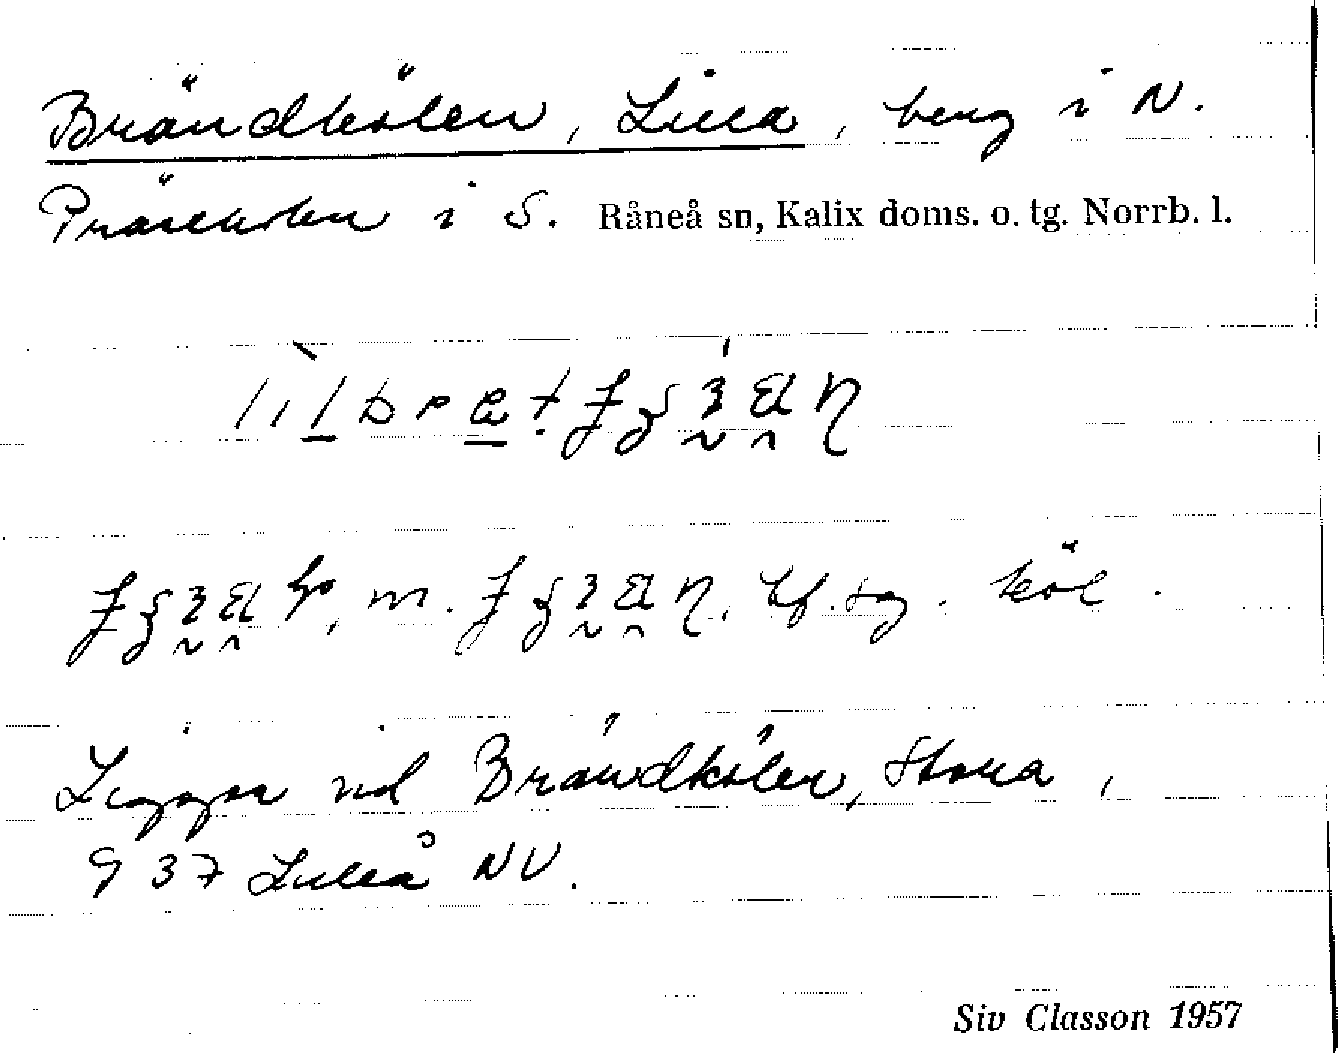 Brändkölen, Lilla, berg i N.
Prästholm i S. Råneå sn, Kalix doms. o. tg. Norrb. l.
m. bf. sg. köl.
Ligger vid Brändkölen, Stora,
9 37 Luleå NV.
Siv Classon 1957